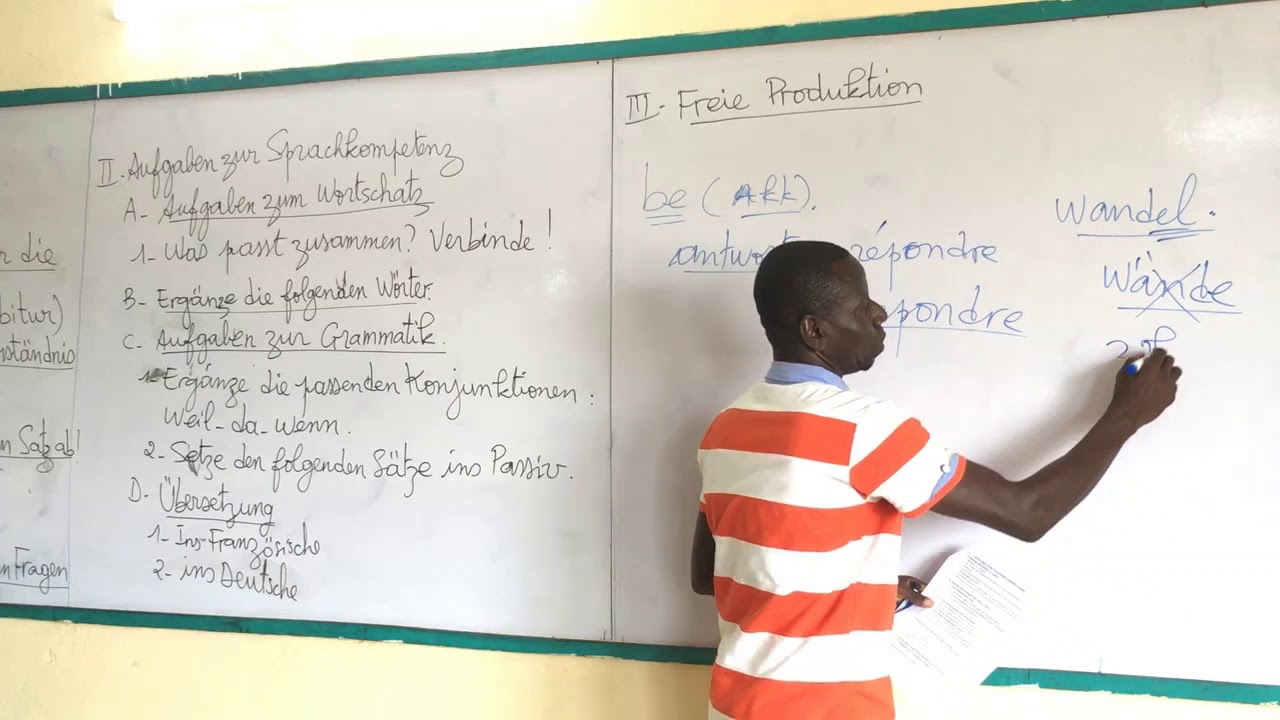 die
bitur)
ständnis
Satz ab!
Fragen
II. Aufgaben zur Sprachkompetenz
A- Aufgaben zum Wortschatz
1- Was passt zusammen? Verbinde!
B- Ergänze die folgenden Wörter.
C- Aufgaben zur Grammatik.
1- Ergänze die passenden Konjunktionen:
Weil-da-wenn.
2- Setze den folgenden Sätze ins Passiv.
D- Übersetzung
1- Ins Französische
2- ins Deutsche
III- Freie Produktion
be (Akk).
répondre
pondre
wandel.
Wände